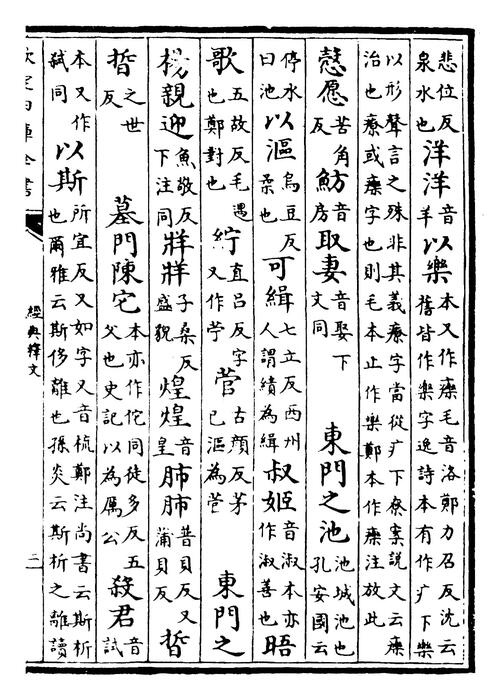 悲位反泉水也洋洋音羊以樂本又作𤻲毛音洛鄭力召反沈云舊皆作樂字逸詩本有作疒下樂
以形聲言之殊非其義療字當從疒下尞案說文云𤻲治也療或𤻲字也則毛本止作樂鄭本作𤻲注放此
慤愿苦角反魴音房取妻音娶下文同　東門之池池城池也孔安國云
停水曰池以漚烏豆反柔也可緝七立反西州人謂績為緝叔姬音淑本亦作淑善也晤
歌五故反毛遇也鄭對也紵直呂反字又作苧菅古顏反茅已漚為菅　東門之
楊親迎魚敬反下注同牂牂子桑反盛貌煌煌音皇肺肺普貝反又蒲貝反晢
晢之世反　墓門陳它本亦作佗同徒多反五父也史記以為厲公殺君音試
本又作弑同以斯所宜反又如字又音梳鄭注尚書云斯析也爾雅云斯侈離也孫炎云斯析之離讀
欽定四庫全書
經典釋文
二